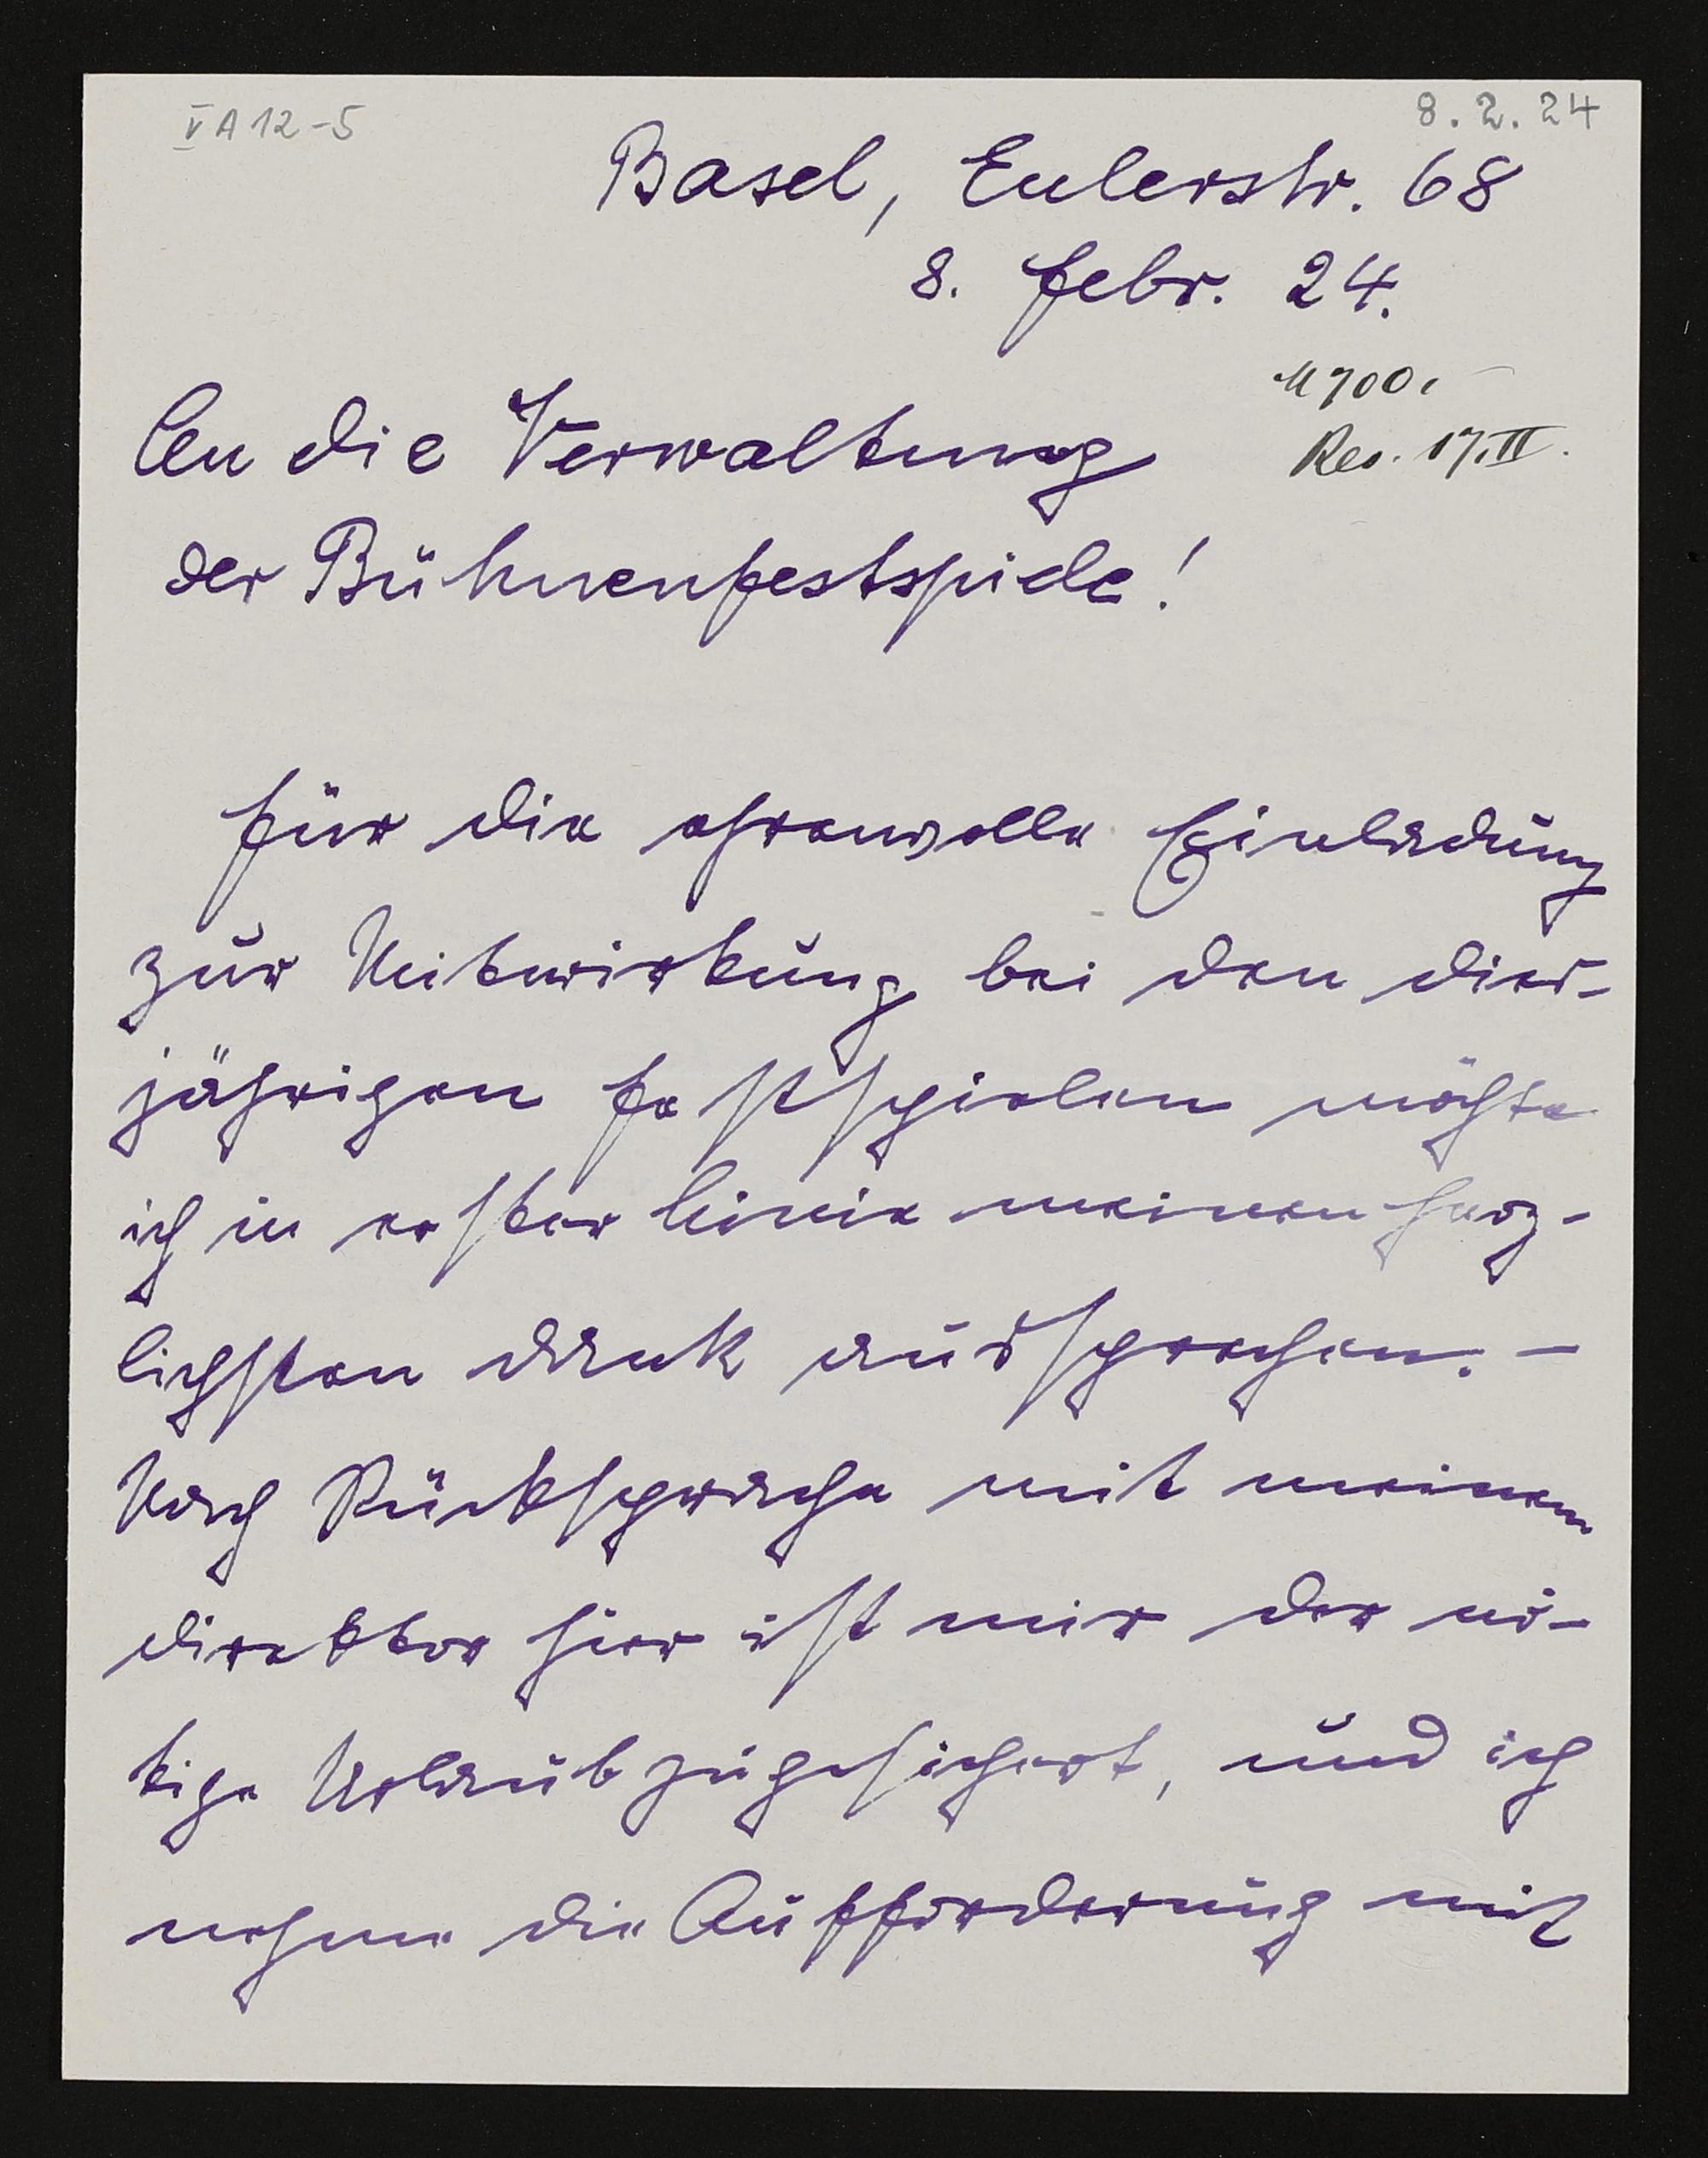 V A 12-5
8. 2. 24
Basel, Eulerstr. 68
8. Febr. 24.
M 700.-
Res. 17.II.
An die Verwaltung
der Bühnenfestspiele!
Für die ehrenvolle Einladung
zur Mitwirkung bei den dies-
jährigen Festspielen möchte
ich in erster Linie meinen herz-
lichsten Dank aussprechen. —
Nach Rücksprache mit meinem
Direktor hier ist mir der nö-
tige Urlaub zugesichert, und ich
nehme die Aufforderung mit